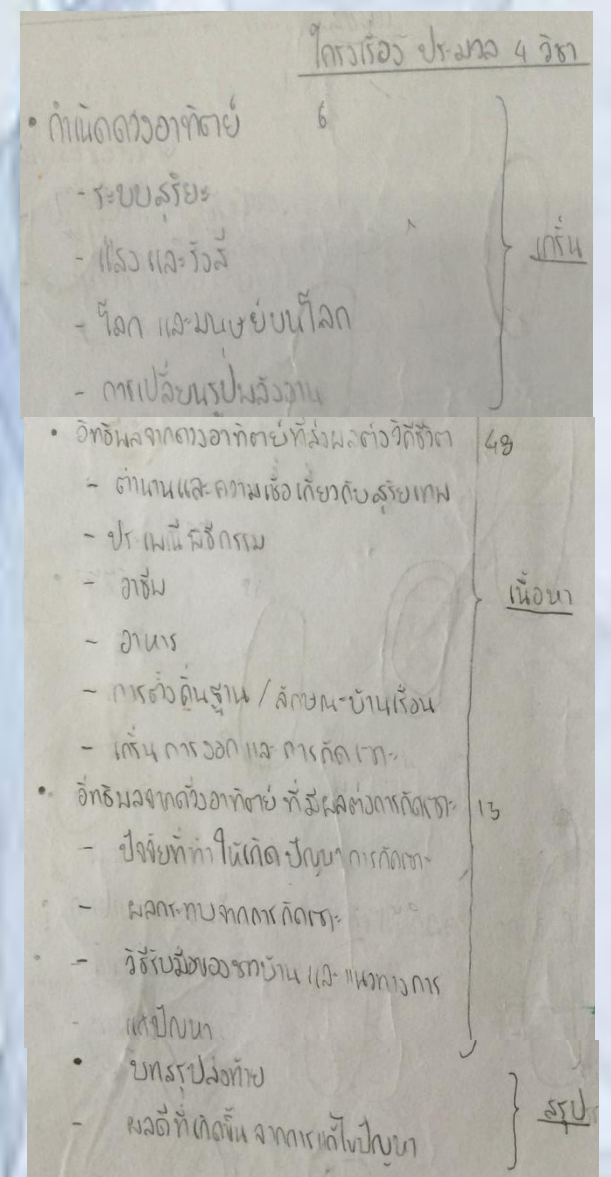 โครงเรื่อง ประมวล 4 วิชา
• กำเนิดดวงอาทิตย์ 6
- ระบบสุริยะ
- แสงและรังสี
- โลก และมนุษย์บนโลก
- การเปลี่ยนรูปพลังงาน
เกริ่น
• อิทธิพลจากดวงอาทิตย์ที่ส่งผลต่อวิถีชีวิต 48
- ตำนานและความเชื่อเกี่ยวกับสุริยเทพ
- ประเพณีพิธีกรรม
- อาชีพ
- อาหาร
- การตั้งถิ่นฐาน / ลักษณะบ้านเรือน
- เกริ่นการงอกและการกัดเซาะ
• อิทธิพลจากดวงอาทิตย์ที่มีผลต่อการกัดเซาะ 13
- ปัจจัยที่ทำให้เกิดปัญหาการกัดเซาะ
- ผลกระทบจากการกัดเซาะ
- วิธีรับมือของชาวบ้านและแนวทางการ
- แก้ปัญหา
เนื้อหา
• บทสรุปส่งท้าย
- ผลดีที่เกิดขึ้นจากการแก้ไขปัญหา
สรุป